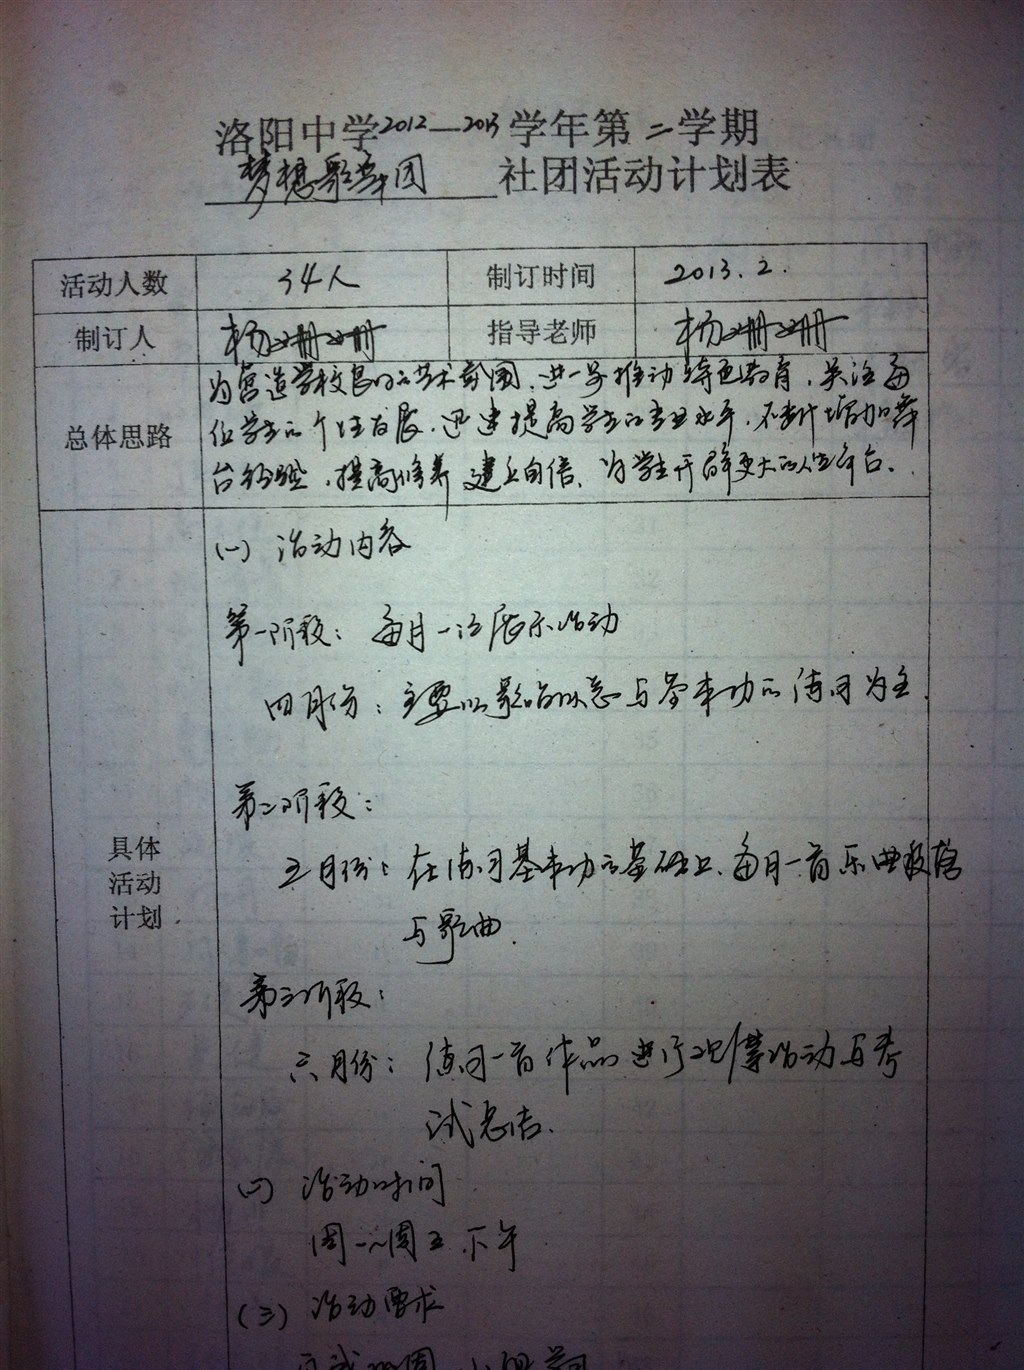 洛阳中学2012—2013学年第二学期
梦想歌舞团 社团活动计划表
活动人数 34人 制订时间 2013.2.
制订人 杨珊珊 指导老师 杨珊珊
总体思路
为营造学校良好的艺术氛围、进一步推动特色教育,关注每
位学生的个性发展.迅速提高学生的专业水平,不断增加舞
台经验,提高修养 建立自信、为学生开辟更大的人生舞台.
具体
活动
计划
(一) 活动内容
第一阶段: 每月一次展示活动
四月份: 主要以歌唱状态与基本功的练习为主.
第二阶段:
五月份: 在练习基本功的基础上、每月一首乐曲
与歌曲.
第三阶段:
六月份: 练习一首作品 进行观摩活动与考
试总结.
(二) 活动时间
周一~周五 下午
(三) 活动要求